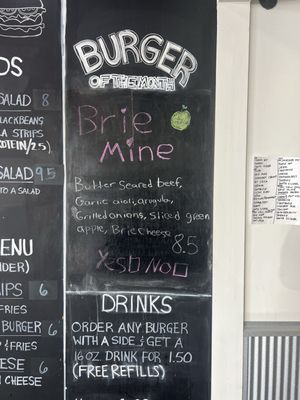 BURGER
OF THE MONTH
Brie
Mine
Butter Seared beef,
Garlic aioli, arugula,
Grilled onions, sliced green
apple, Brie Cheese
8.5
Yes No
DRINKS
ORDER ANY BURGER
WITH A SIDE & GET A
16 OZ. DRINK FOR 1.50
(FREE REFILLS)
DS
SALAD 8
BLACKBEANS
LA STRIPS
ROTEIN/2.5)
SALAD 9.5
TO A SALAD
ENU
DER)
IPS 6
FRIES
BURGER 6
& FRIES
EESE 6
N CHEESE